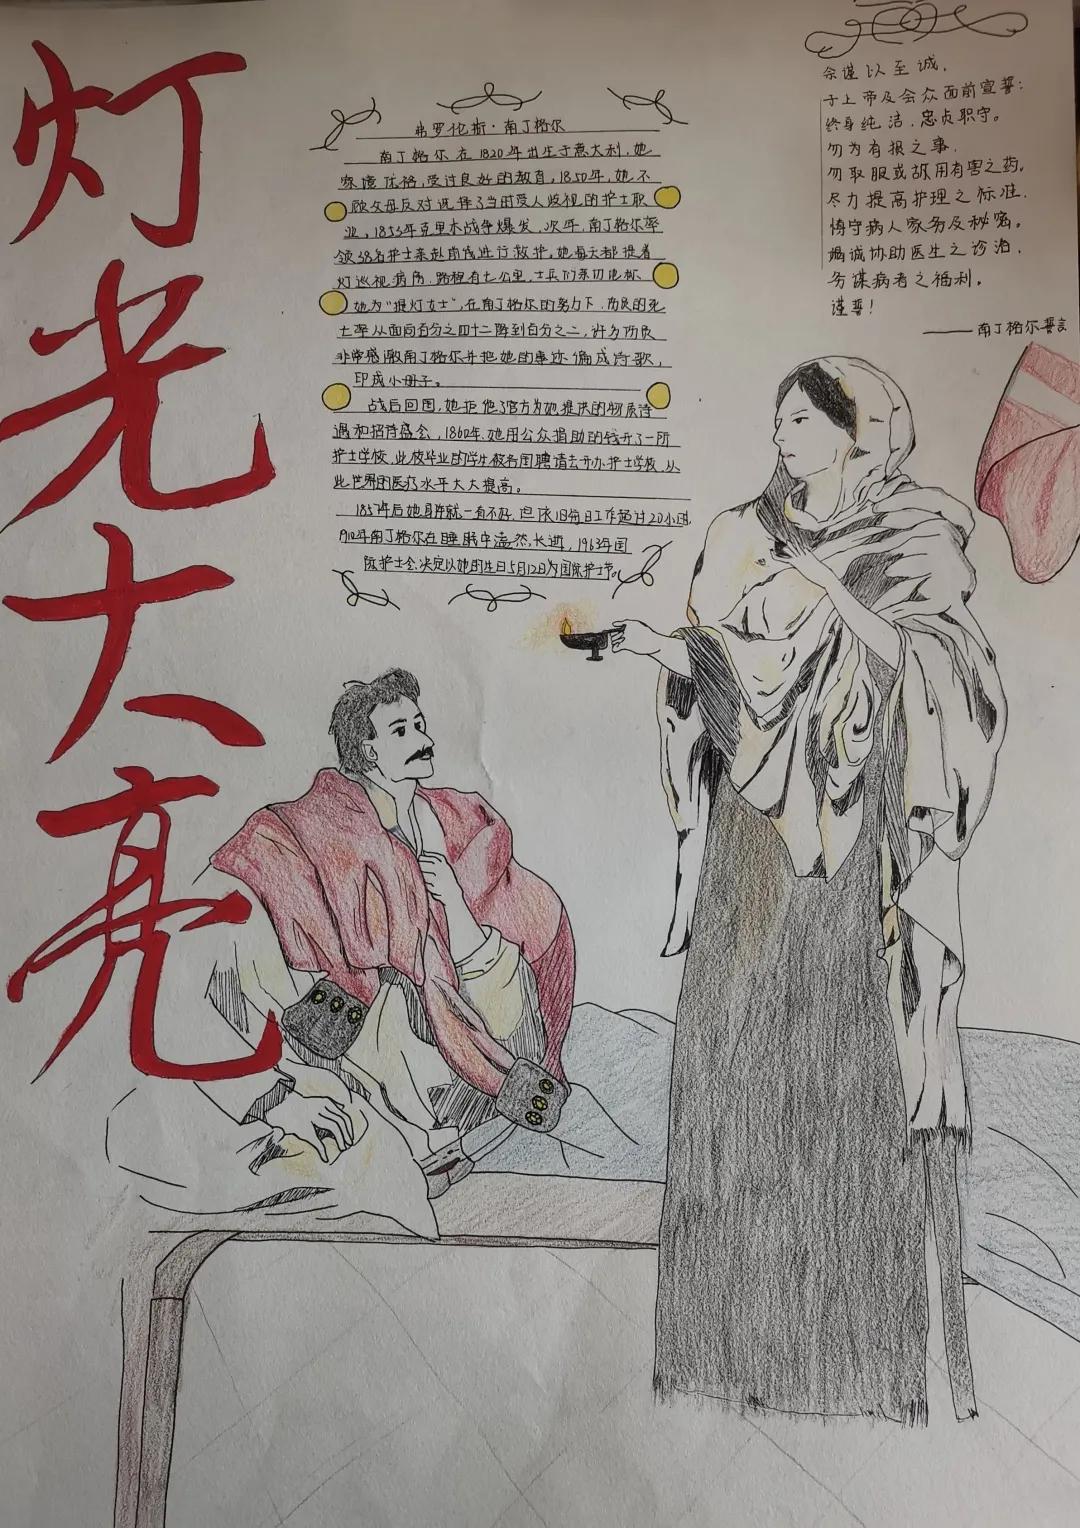 灯光大亮
弗罗伦斯·南丁格尔
南丁格尔在1820年出生于意大利，她
家境优裕，受过良好的教育，1850年，她不
顾父母反对选择了当时受人歧视的护士职
业，1853年克里木战争爆发，次年，南丁格尔率
领38名护士亲赴前线进行救护，她每天都提着
灯巡视病房，路程有七公里，士兵们亲切地称
她为“提灯女士”，在南丁格尔的努力下，伤员的死
亡率从面向百分之四十二降到百分之二，许多伤员
非常感激南丁格尔并把她的事迹编成诗歌，
印成小册子。
战后回国，她拒绝了官方为她提供的物质待
遇和招待盛会，1860年，她用公众捐助的钱开了一所
护士学校，此校毕业的学生被各国聘请去开办护士学校，从
此世界的医疗水平大大提高。
1857年后她身体就一直不好，但依旧每日工作超过20小时，
1910年南丁格尔在睡眠中溘然长逝，1963年国
际护士会决定以她的生日5月12日为国际护士节。
余谨以至诚，
于上帝及会众面前宣誓：
终身纯洁，忠贞职守。
勿为有损之事，
勿取服或故用有害之药。
尽力提高护理之标准，
慎守病人家务及秘密。
竭诚协助医生之诊治，
务谋病者之福利。
谨誓！
——南丁格尔誓言